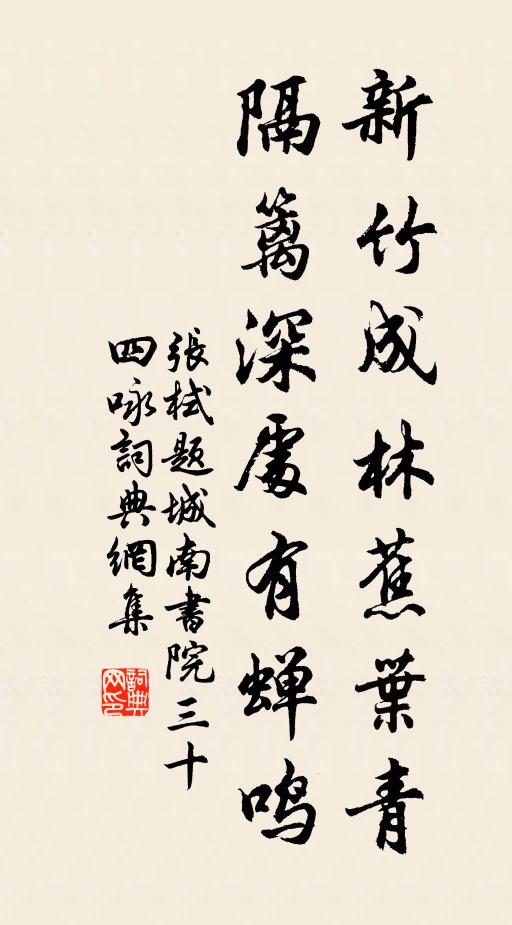 新竹成林蕉葉青
隔篱深處有蝉鸣
張栻题城南書院三十
四咏詞典網集
詞典网印